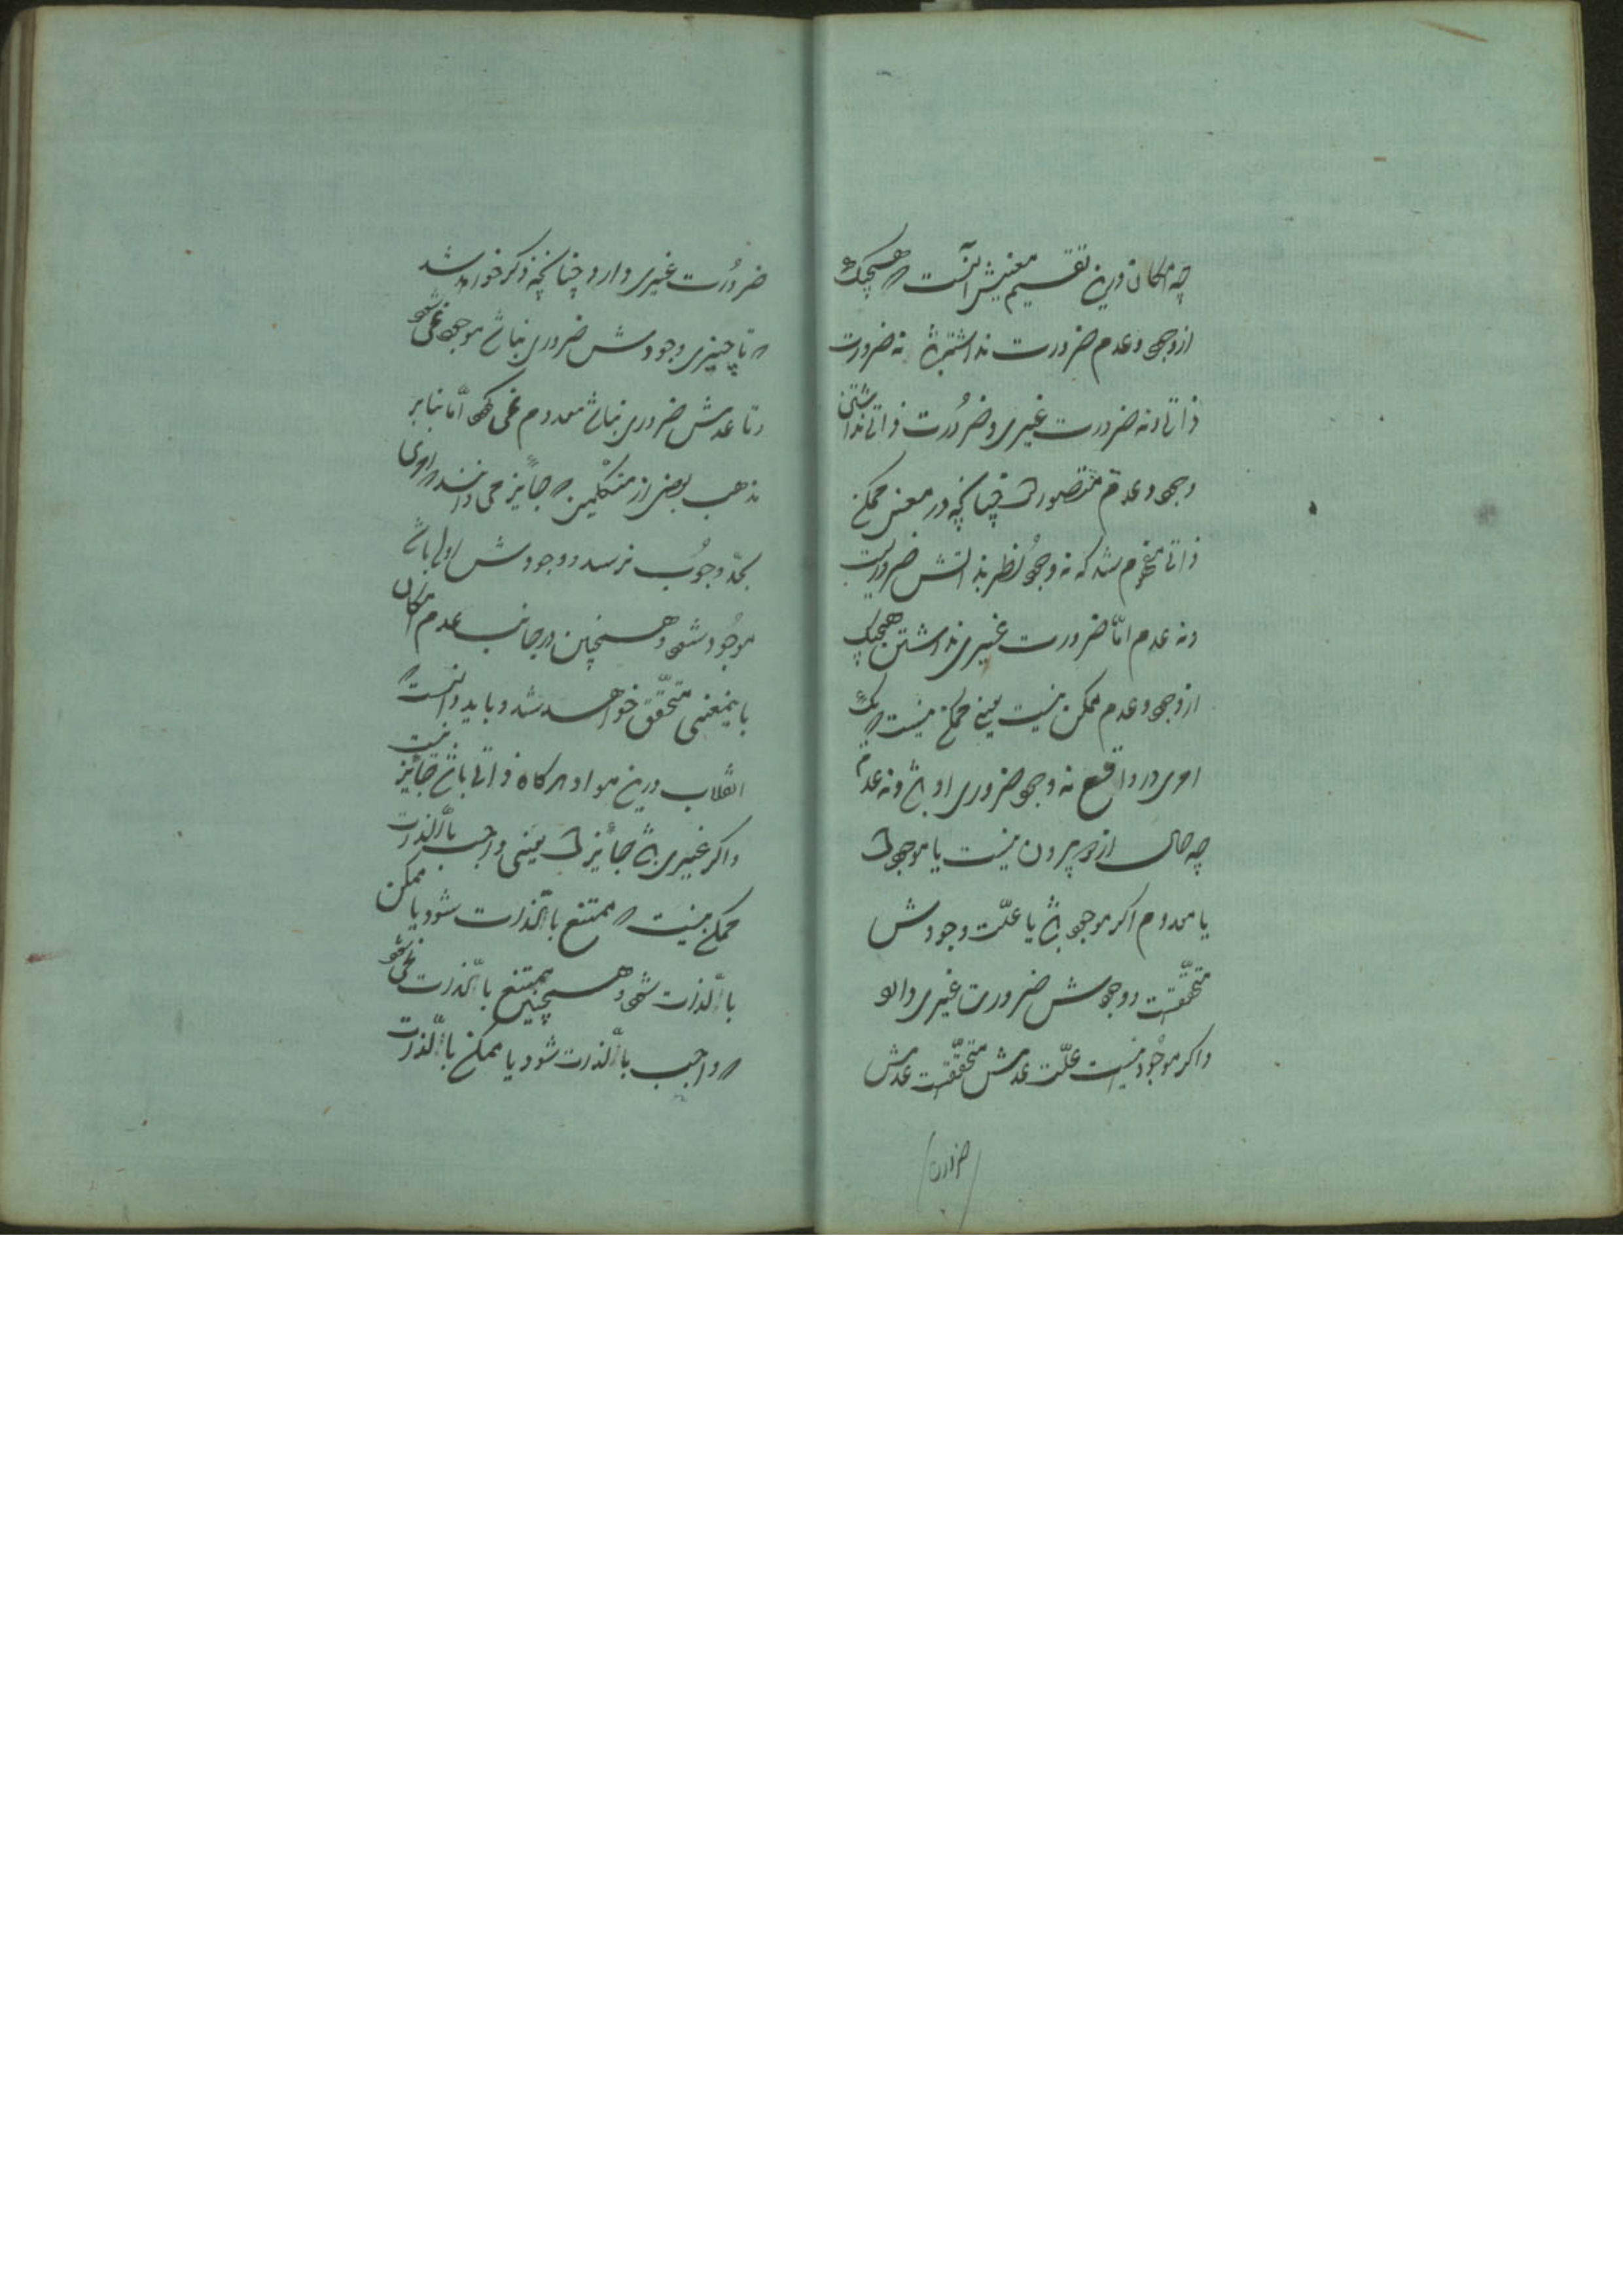 چه امکان درین تقسیم معنیش آنست که هیچیک
از وجود و عدم ضرورت نداشته باشد نه ضرورت
ذاتی و نه ضرورت غیری و ضرورت ذاتی نداشتن
وجود و عدم متصور است چنانچه در معنی ممکن
ذاتی مفهوم شد که نه وجود نظر بذاتش ضروریست
و نه عدم امّا ضرورت غیری نداشتن هیچیک
از وجود و عدم ممکن نیست یعنی ممکن نیست که
امری در واقع نه وجود ضروری او باشد و نه عدم
چه حال از دو بیرون نیست یا موجود است
یا معدوم اگر موجود باشد یا علّت وجودش
متحقّقست و وجودش ضرورت غیری دارد
و اگر موجود نیست علّت عدمش متحقّقست عدمش
ضرورت
ضرورت غیری دارد چنانچه ذکر خواهد شد
که تا چیزی وجودش ضروری نباشد موجود نمی شود
و تا عدمش ضروری نباشد معدوم نمی شود امّا بنابر
مذهب بعضی از متکلمین که جایز می دانند که امری
بحدّ وجوب نرسد و وجودش اولی باشد
موجود شود و همچنین در جانب عدم امکان
باینمعنی متحقّق خواهد شد و باید دانست که
انقلاب درین مواد هرگاه ذاتی باشد جایز نیست
و اگر غیری باشد جایز است یعنی واجب بالّذات
ممکن نیست که ممتنع بالّذات شود یا ممکن
بالّذات شود و همچنین ممتنع بالّذات نمی شود
که واجب بالّذات شود یا ممکن بالّذات